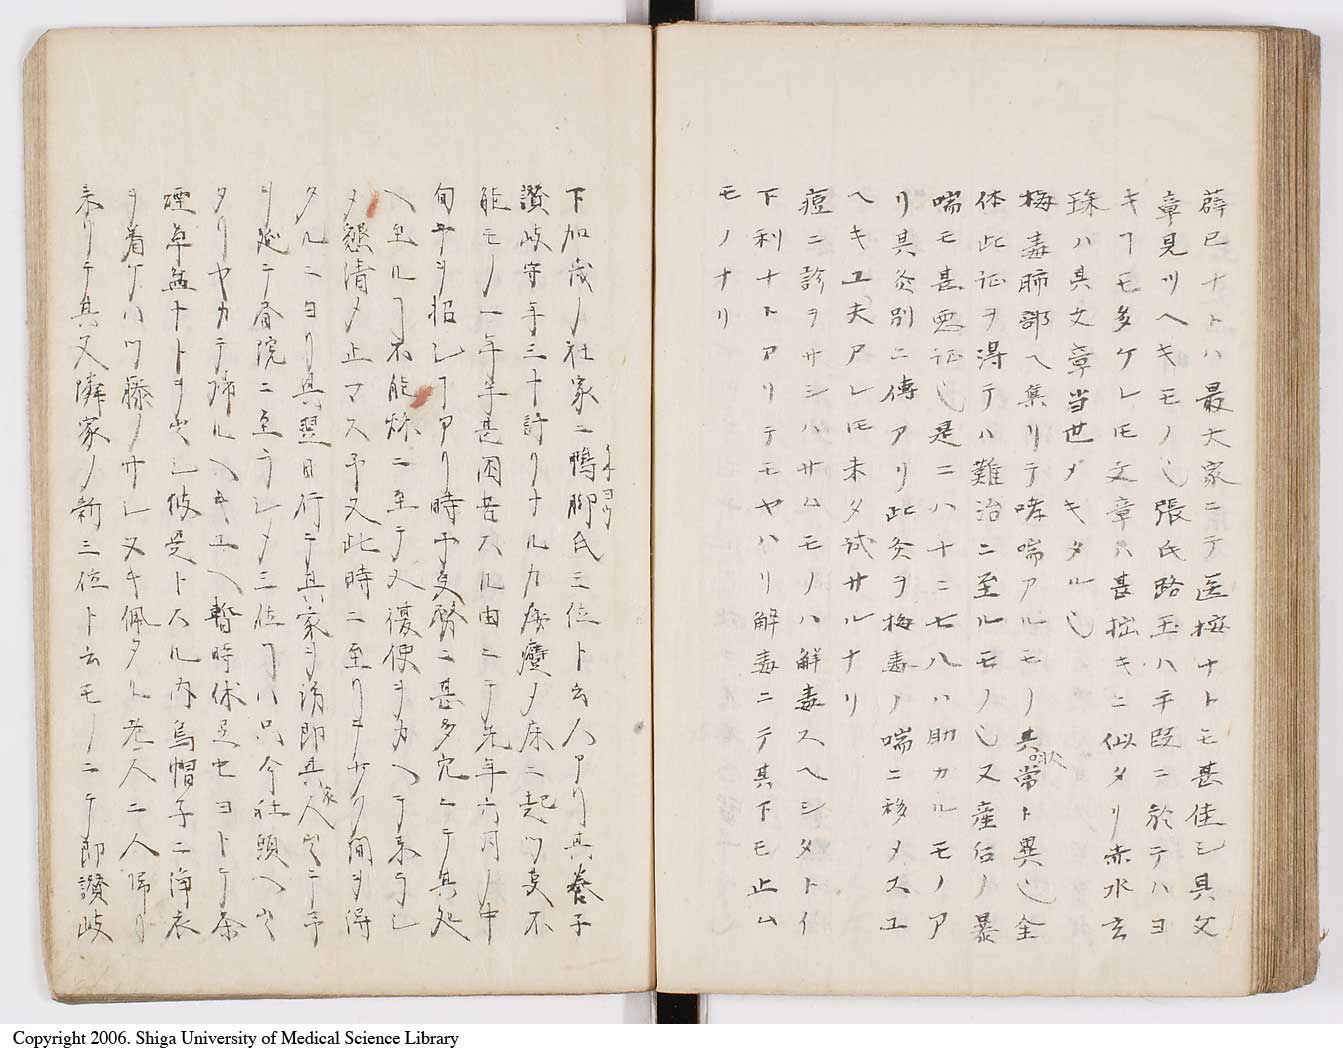 薜已ナトハ最大家ニテ医按ナトモ甚佳シ其文
章見ツヘキモノ也張氏路玉ハ手段ニ於テハヨ
キヿモ多ケレ𪜈文章ハ甚拙キニ似タリ赤水玄
珠ハ其文章当世メキタル也
梅毒肺部ヘ集リテ哮喘アルモノ其状常ト異也全
体此证ヲ得テハ難治ニ至ルモノ也又産后ノ暴
喘モ甚悪证也是ニハ十ニ七八ハ助カルモノア
リ其灸別ニ傳アリ此灸ヲ梅毒ノ喘ニ移メスユ
ヘキ工夫アレ𪜈未タ试サルナリ
痘ニ診ヲサシハサムモノハ解毒スヘシタトイ
下利ナトアリテモヤハリ解毒ニテ其下モ止ム
モノナリ
下加茂ノ社家ニ鴨脚氏三位ト云人アリ其養子
イチヨウ
讃岐守年三十計リナルカ痿躄ノ床ニ起ツ夏不
能モノ一年半甚困苦スル由ニテ先年六月ノ中
旬予ヲ招シヿアリ時予受 ニ甚多冗ニテ其処
ヘ至ルヿ不能秌ニ至テ又復使ヲカヘテ来ラシ
メ懇请メ止マス予又此時ニ至リヰサヽ间ヲ得
タルニヨリ其翌日行テ其家ヲ誘即其家人出テ予
ヲ延テ 院ニ至ラシメ三位ヿハ只今社頭ヘ出
タリヤカテ帰ルヘキユヘ暫時休足セヨトテ茶
煙草盆ナトヲ出シ彼是トスル内烏帽子ニ浄衣
ヲ着 ハツ藤ノサシヌキ佩タル老人二人帰リ
来リテ其又隣家ノ新三位ト云モノニテ即讃岐
Copyright 2006. Shiga University of Medical Science Library